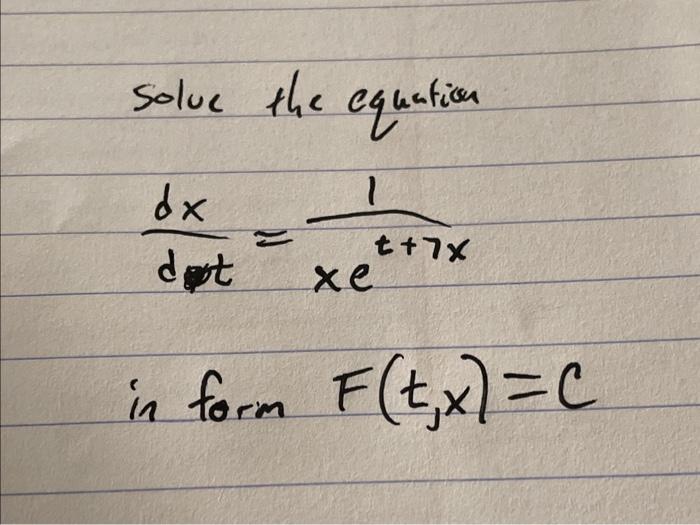 Solve the equation
dx/dt = 1/(xe^(t+7x))
in form F(t,x)=C